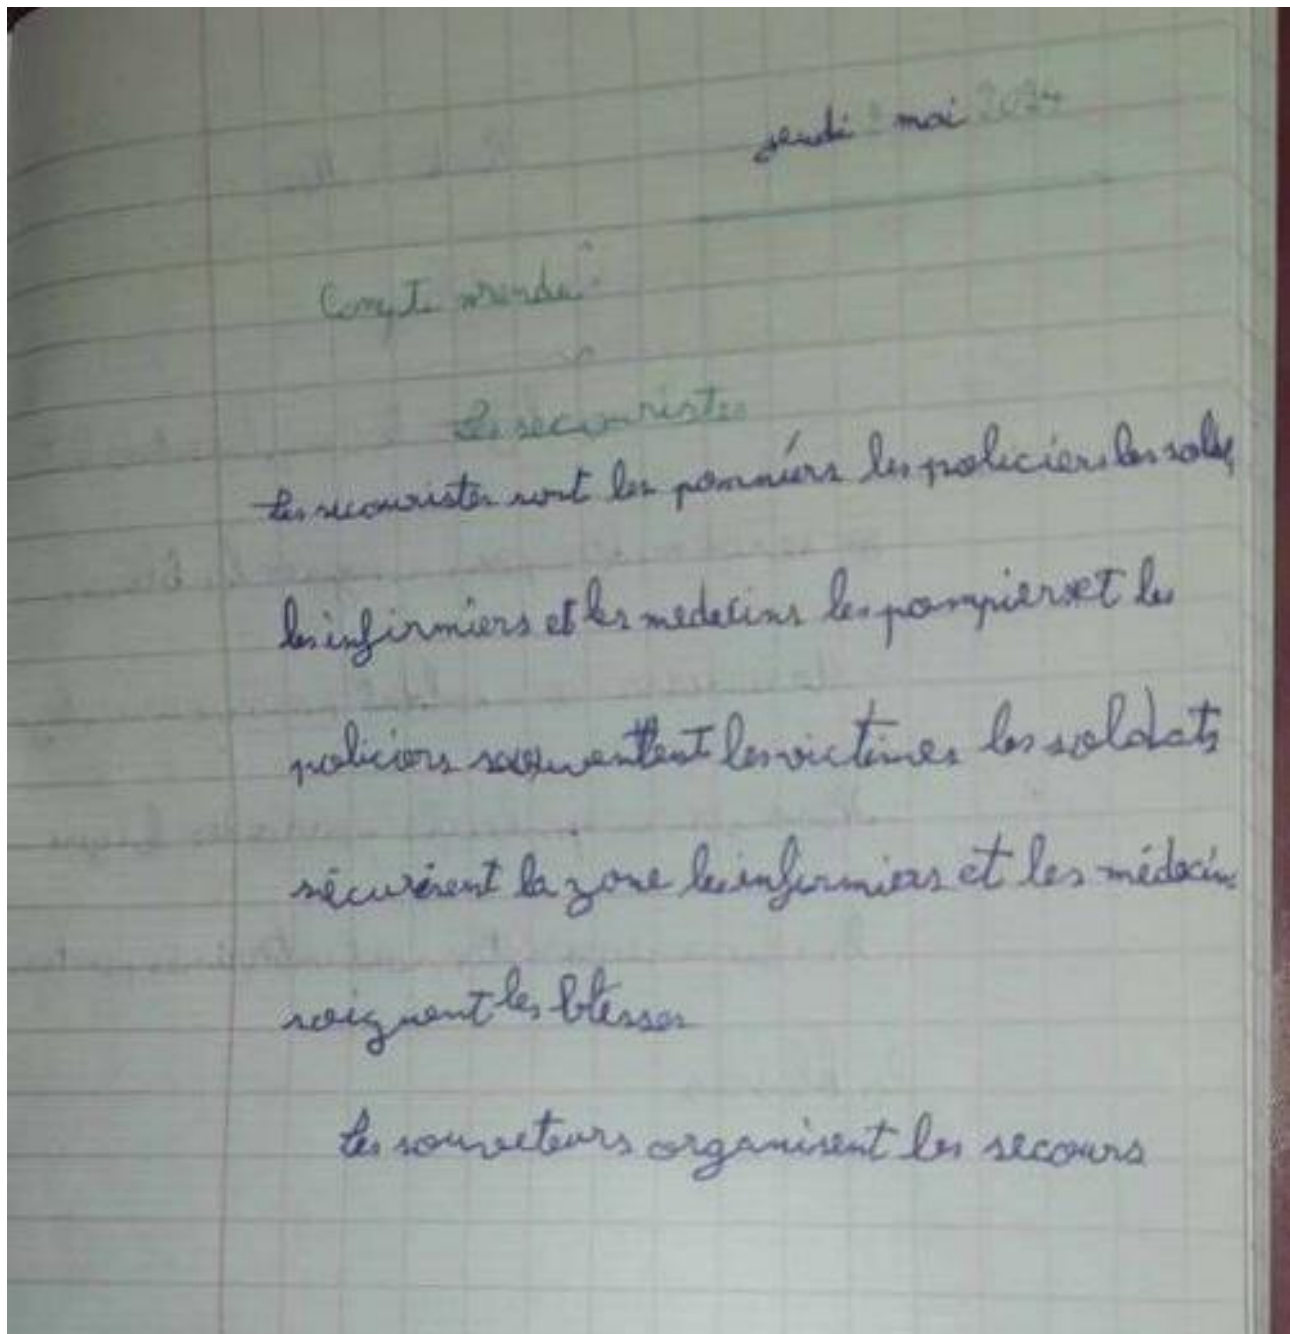 jeudi mai 2024
Compte rendu :
Les secouristes
Les secouristes sont les pomniérs les policiers les sold
les infirmiers et les medecins les pompiers et les
policiers sauvent les victimes les soldats
sécurisent la zone les infirmiers et les médecins
soignent les blésses
Les sauveteurs organisent les secours